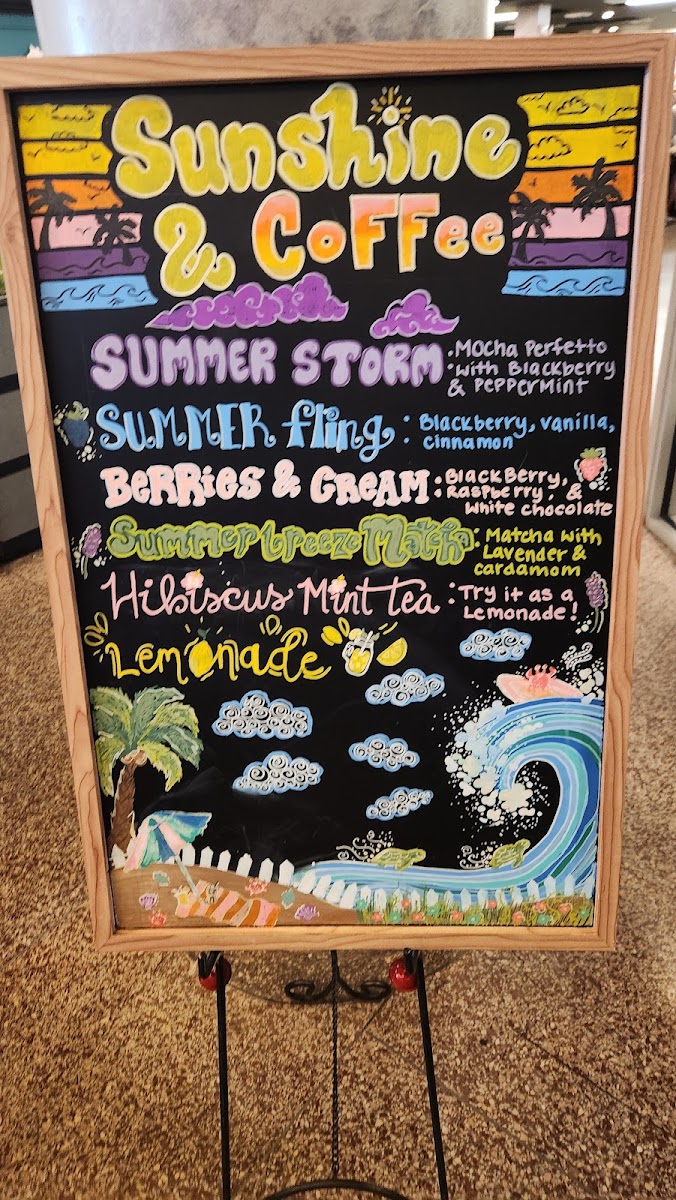 Sunshine
& Coffee
SUMMER STORM : Mocha Perfetto
with Blackberry
& Peppermint
SUMMER fling : Blackberry, vanilla,
cinnamon
BERRIES & CREAM : BlackBerry,
Raspberry, &
White chocolate
Summer breeze Matcha : Matcha with
Lavender &
cardamom
Hibiscus Mint tea : Try it as a
Lemonade!
Lemonade